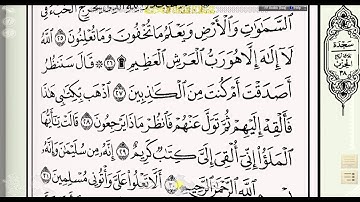 السَّمَاوَاتِ وَالْأَرْضِ وَيَعْلَمُ مَا تُخْفُونَ وَمَا تُعْلِنُونَ ٢٥
اللَّهُ لَا إِلَٰهَ إِلَّا هُوَ رَبُّ الْعَرْشِ الْعَظِيمِ ۩ ٢٦ ۞ قَالَ سَنَنظُرُ
أَصَدَقْتَ أَمْ كُنتَ مِنَ الْكَاذِبِينَ ٢٧ اذْهَب بِّكِتَابِي هَٰذَا
فَأَلْقِهْ إِلَيْهِمْ ثُمَّ تَوَلَّ عَنْهُمْ فَانظُرْ مَاذَا يَرْجِعُونَ ٢٨ قَالَتْ يَا أَيُّهَا
الْمَلَأُ إِنِّي أُلْقِيَ إِلَيَّ كِتَابٌ كَرِيمٌ ٢٩ إِنَّهُ مِن سُلَيْمَانَ وَإِنَّهُ
بِسْمِ اللَّهِ الرَّحْمَٰنِ الرَّحِيمِ ٣٠ أَلَّا تَعْلُوا عَلَيَّ وَأْتُونِي مُسْلِمِينَ ٣١
سَجْدَة
الحِزْب
٣٨